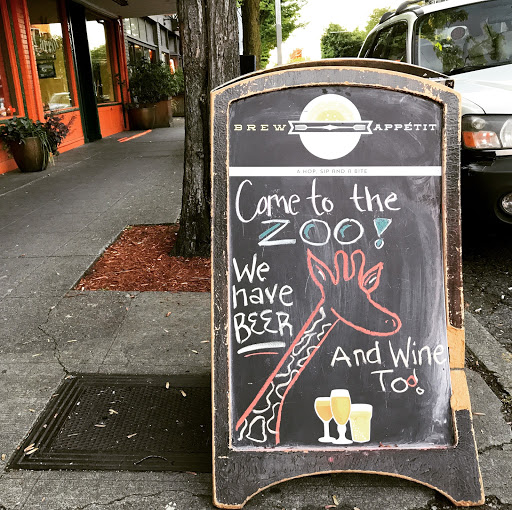 BREW APPÉTIT
A HOP, SIP AND A BITE
Come to the
ZOO!
We
have
BEER
And Wine
Too!